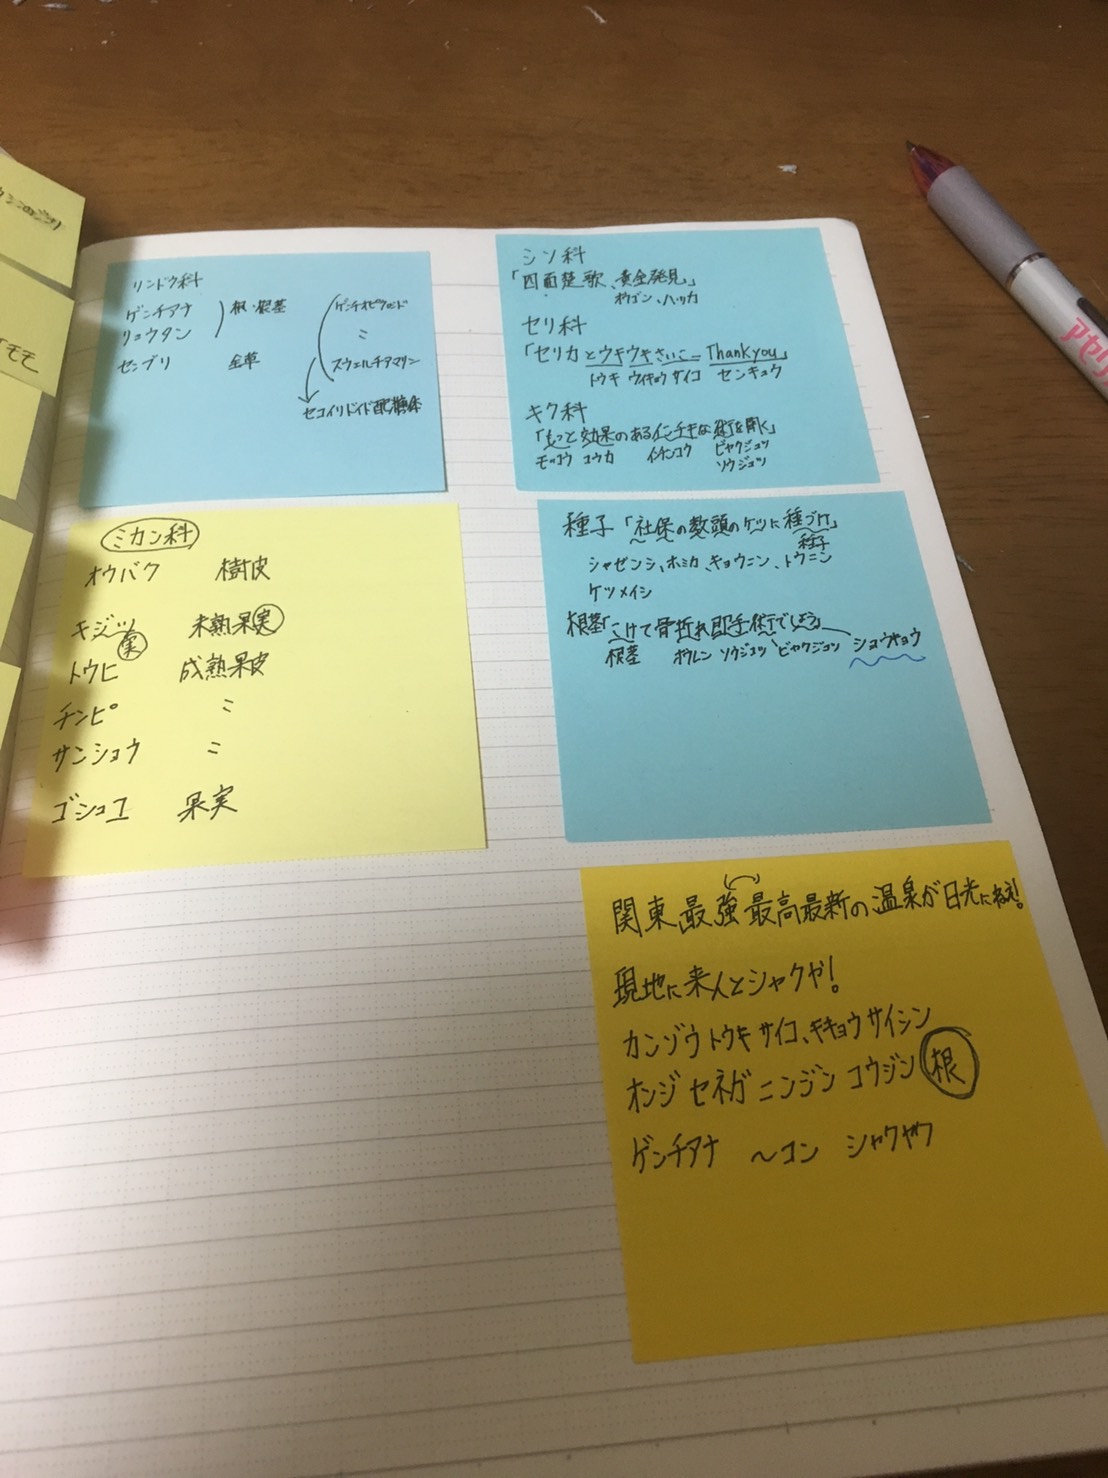 リンドウ科
ゲンチアナ
リュウタン
根・根茎
センブリ 全草
ゲンチオピクロシド
〃
スウェルチアマリン
セコイリドイド配糖体
シソ科
「四面楚歌、黄金発見」
オウゴン、ハッカ
セリ科
「セリカとウキウキさいこーThank you」
トウキ ウイキョウ サイコ センキュウ
キク科
「もっと効果のあるインチキな術を開く」
モッコウ コウカ インチンコウ ビャクジュツ
ソウジュツ
ミカン科
オウバク 樹皮
キジツ 未熟果実
実
トウヒ 成熟果皮
チンピ 〃
サンショウ 〃
ゴシュユ 果実
種子「社保の教頭のケツに種づけ」
種子
シャゼンシ、ホミカ、キョウニン、トウニン
ケツメイシ
根茎「こけて骨折れ即手術でしょう」
根茎 オウレン ソウジュツ、ビャクジュツ ショウキョウ
関東最強最高最新の温泉が日光にねえ!
現地に来人とシャクや!
カンゾウ トウキ サイコ、キキョウ サイシン
オンジ セネガ ニンジン コウジン 根
ゲンチアナ 〜コン シャクヤク
モモ
アセリ